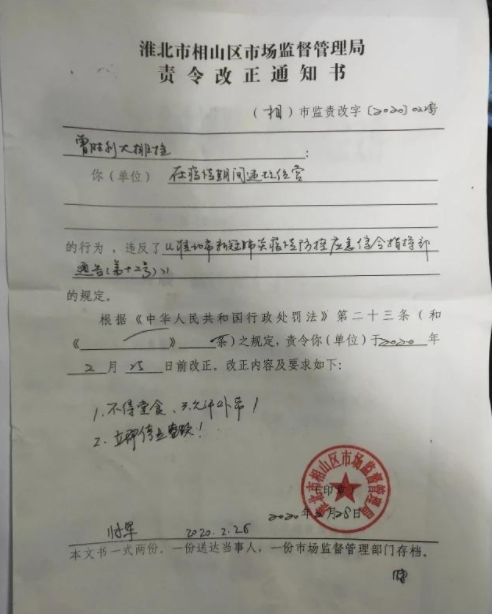 淮北市相山区市场监督管理局
责令改正通知书
（相）市监责改字〔2020〕02号
曹胜利大排档：
你（单位）在疫情期间违规经营
的行为，违反了《淮北市新冠肺炎疫情防控应急综合指挥部
通告(第十二号)》
的规定。
根据《中华人民共和国行政处罚法》第二十三条（和
《 》 条）之规定，责令你（单位）于2020年
2月25日前改正。改正内容及要求如下：
1.不得堂食、只允许外带！
2.立即停业整顿！
淮北市相山区市场监督管理局
（印章）
2020年2月25日
2020.2.25
本文书一式两份，一份送达当事人，一份市场监督管理部门存档。